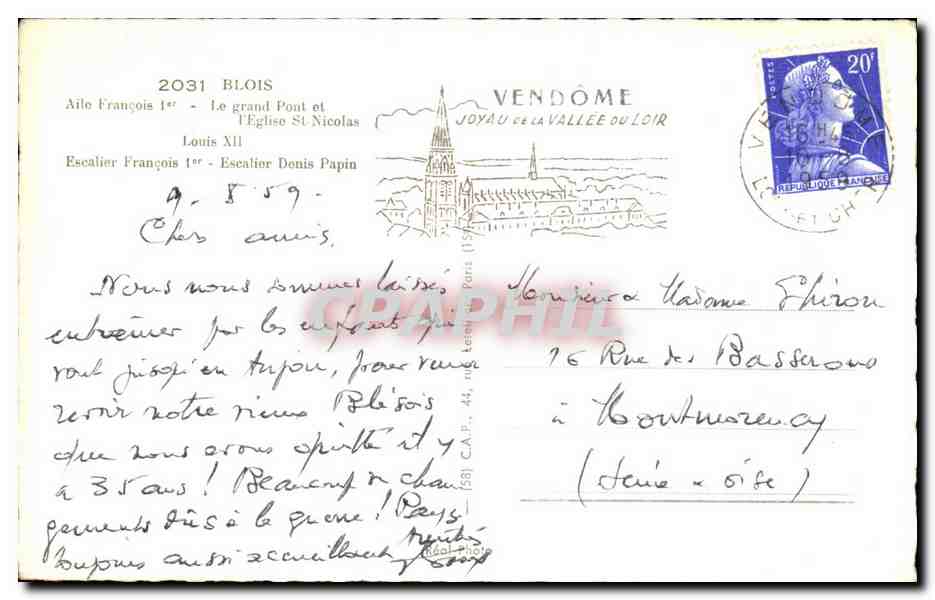 2031 BLOIS
Aile François 1er - Le grand Pont et
l'Eglise St-Nicolas
Louis XII
Escalier François 1er - Escalier Denis Papin
9. 8 59.
Chers amis,
Nous nous sommes laissés
entraîner par les enfants qui
vont jusqu'en Anjou, pour venir
revoir notre vieux Blésois
que nous avons quitté il y
a 35 ans ! Beaucoup de chan
gements dûs à la guerre ! Pays
toujours aussi accueillant
Amitiés
VENDÔME
JOYAU DE LA VALLÉE DU LOIR
POSTES
20F
REPUBLIQUE FRANÇAISE
(58) C.A.P., 44, rue Paris (15
Réal-Photo
CPAPHIL
Monsieur & Madame Thiron
16 Rue des Basserons
à Montmorency
(Seine & Oise)